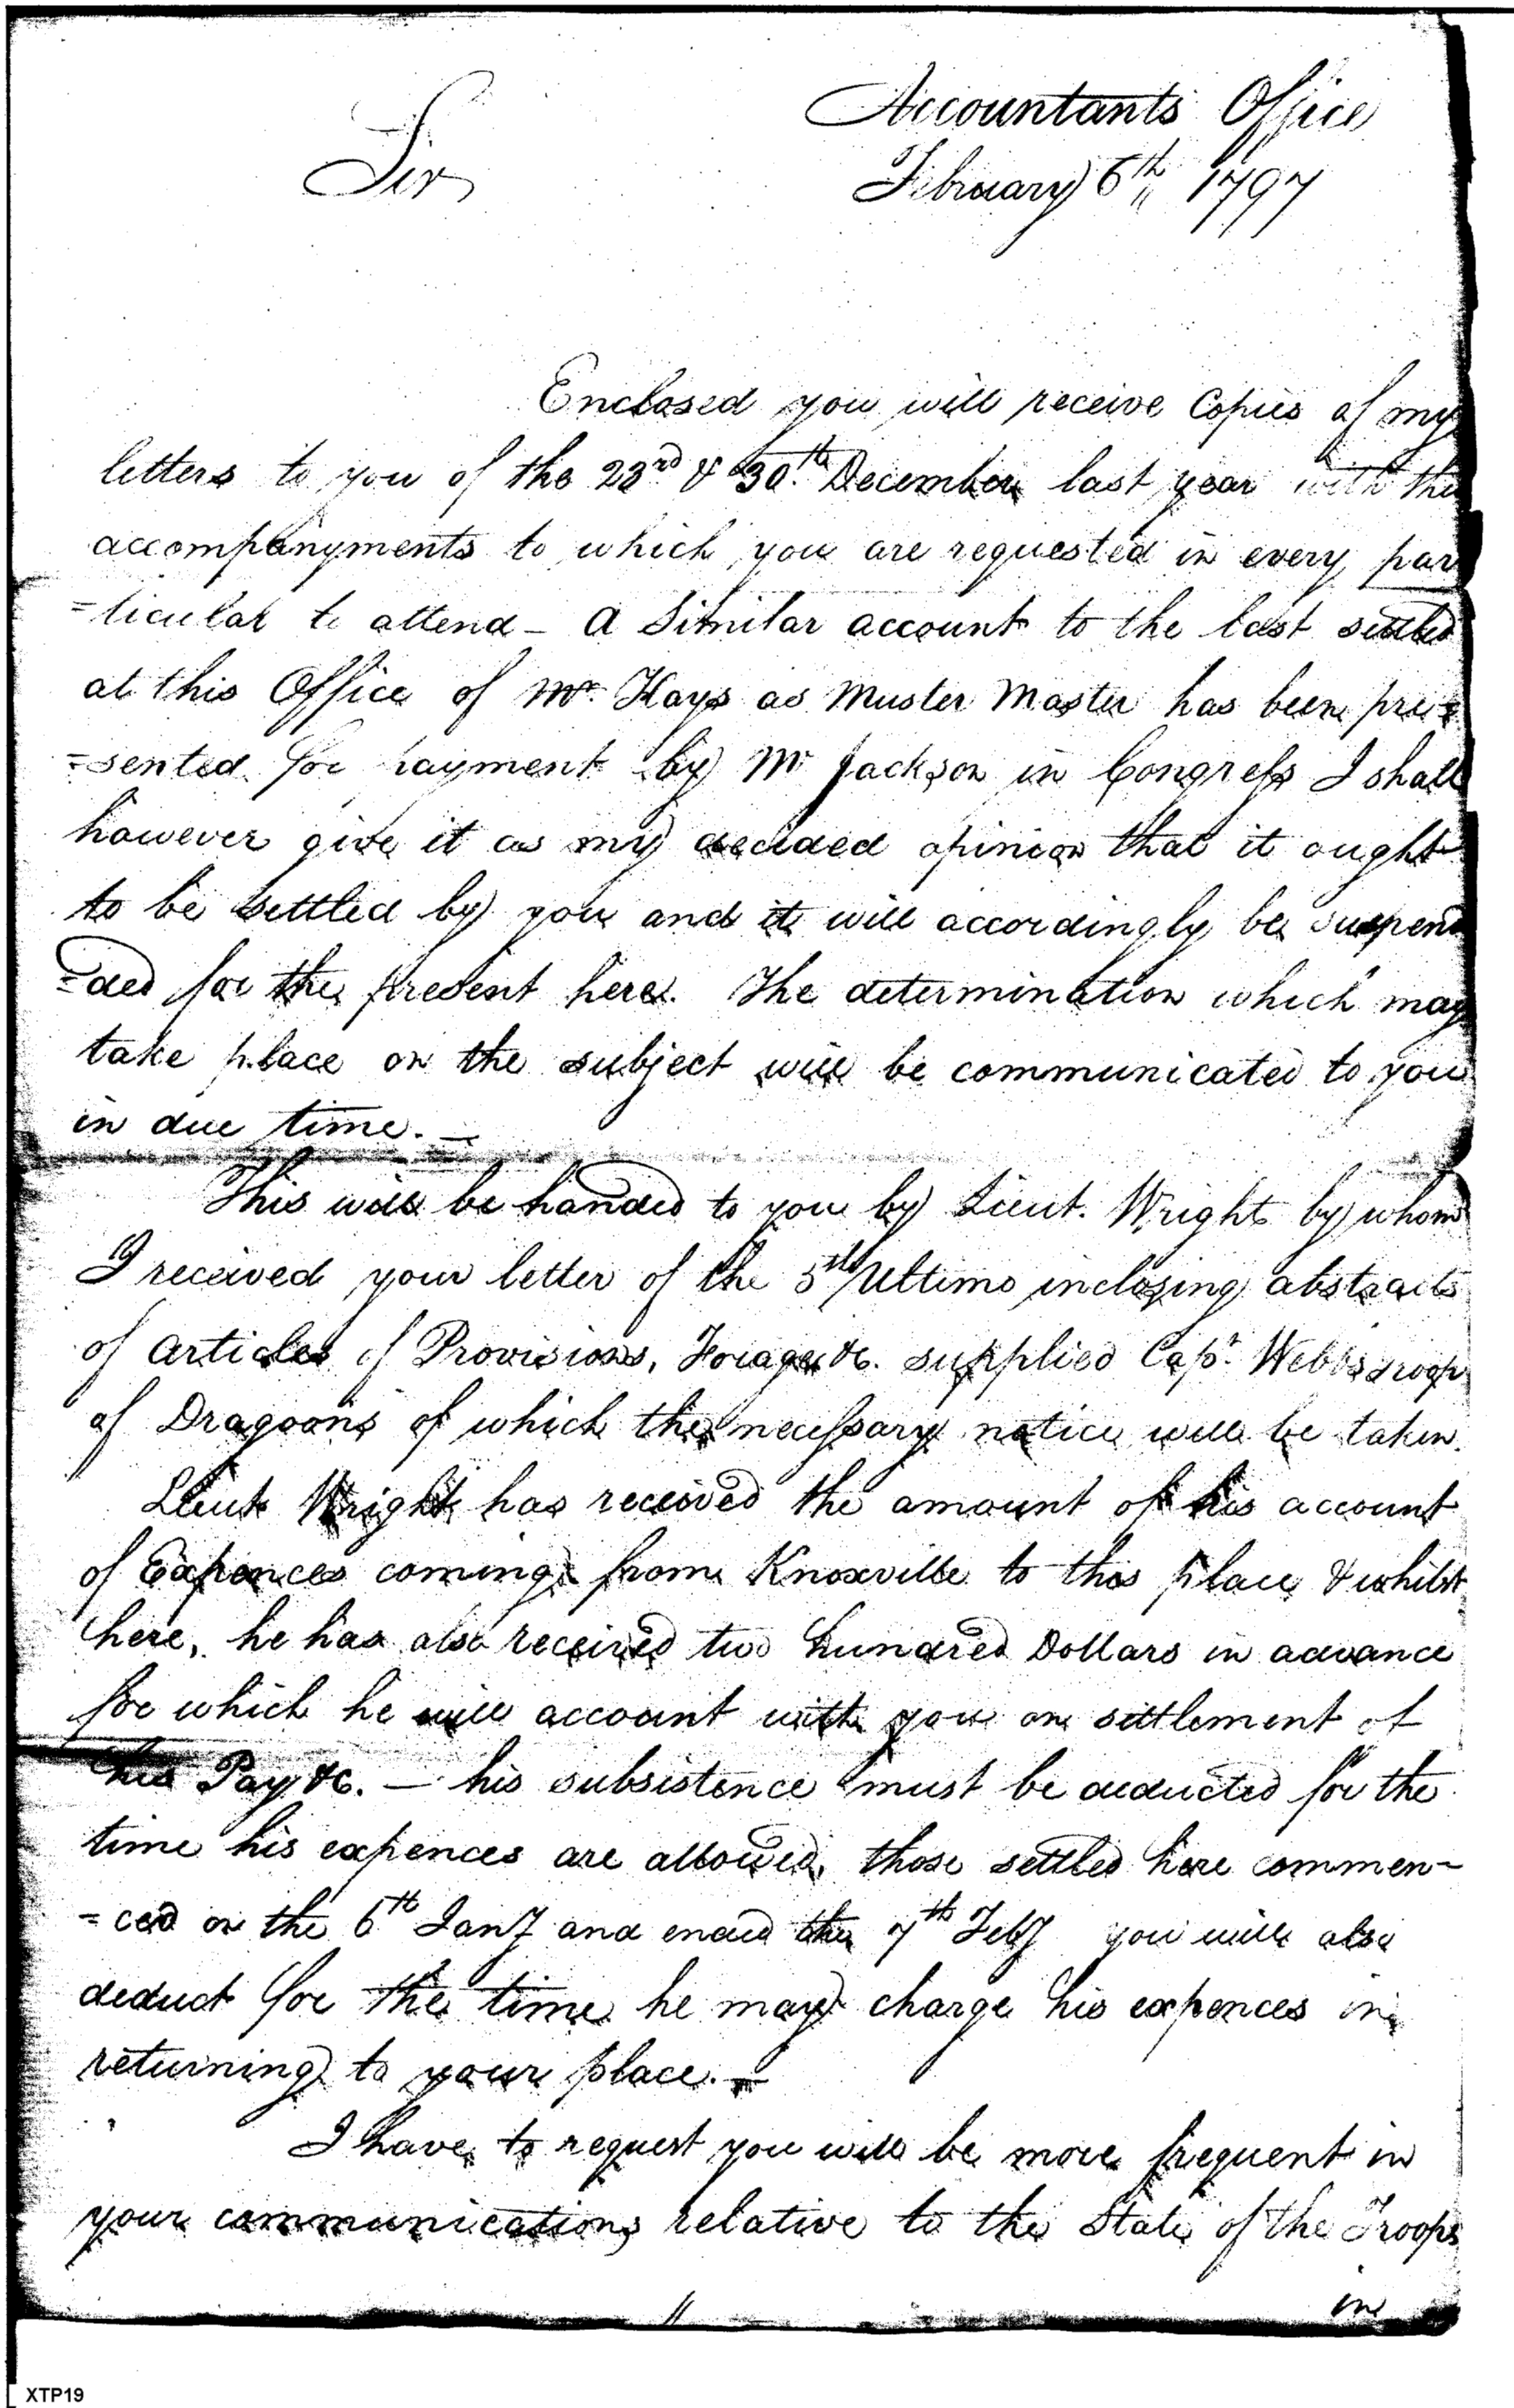 Accountants Office
Sir
February 6th 1797
Enclosed you will receive Copies of my
letters to you of the 23rd & 30th December last year with the
accompanyments to which you are requested in every par
=ticular to attend - A Similar account to the last settled
at this Office of Mr Hays as Muster Master has been pre=
=sented for payment by Mr Jackson in Congress I shall
however give it as my decided opinion that it ought
to be settled by you and it will accordingly be suspen
=ded for the present here. The determination which may
take place on the subject will be communicated to you
in due time. —
This will be handed to you by Lieut. Wright by whom
I received your letter of the 5th Ultimo inclosing abstracts
of Articles of Provisions, Forage &c. supplied Capt. Webbs troop
of Dragoons of which the necessary notice will be taken.
Lieut Wright has received the amount of his account
of Expences coming from Knoxville to this place & whilst
here, he has also received two hundred Dollars in advance
for which he will account with you on settlement of
his Pay &c. — his subsistence must be deducted for the
time his expences are allowed, those settled here commen-
=ced on the 6th Jany and ended the 7th Feby you will also
deduct for the time he may charge his expences in
returning to your place. —
I have to request you will be more frequent in
your communications relative to the State of the Troops
in
XTP19